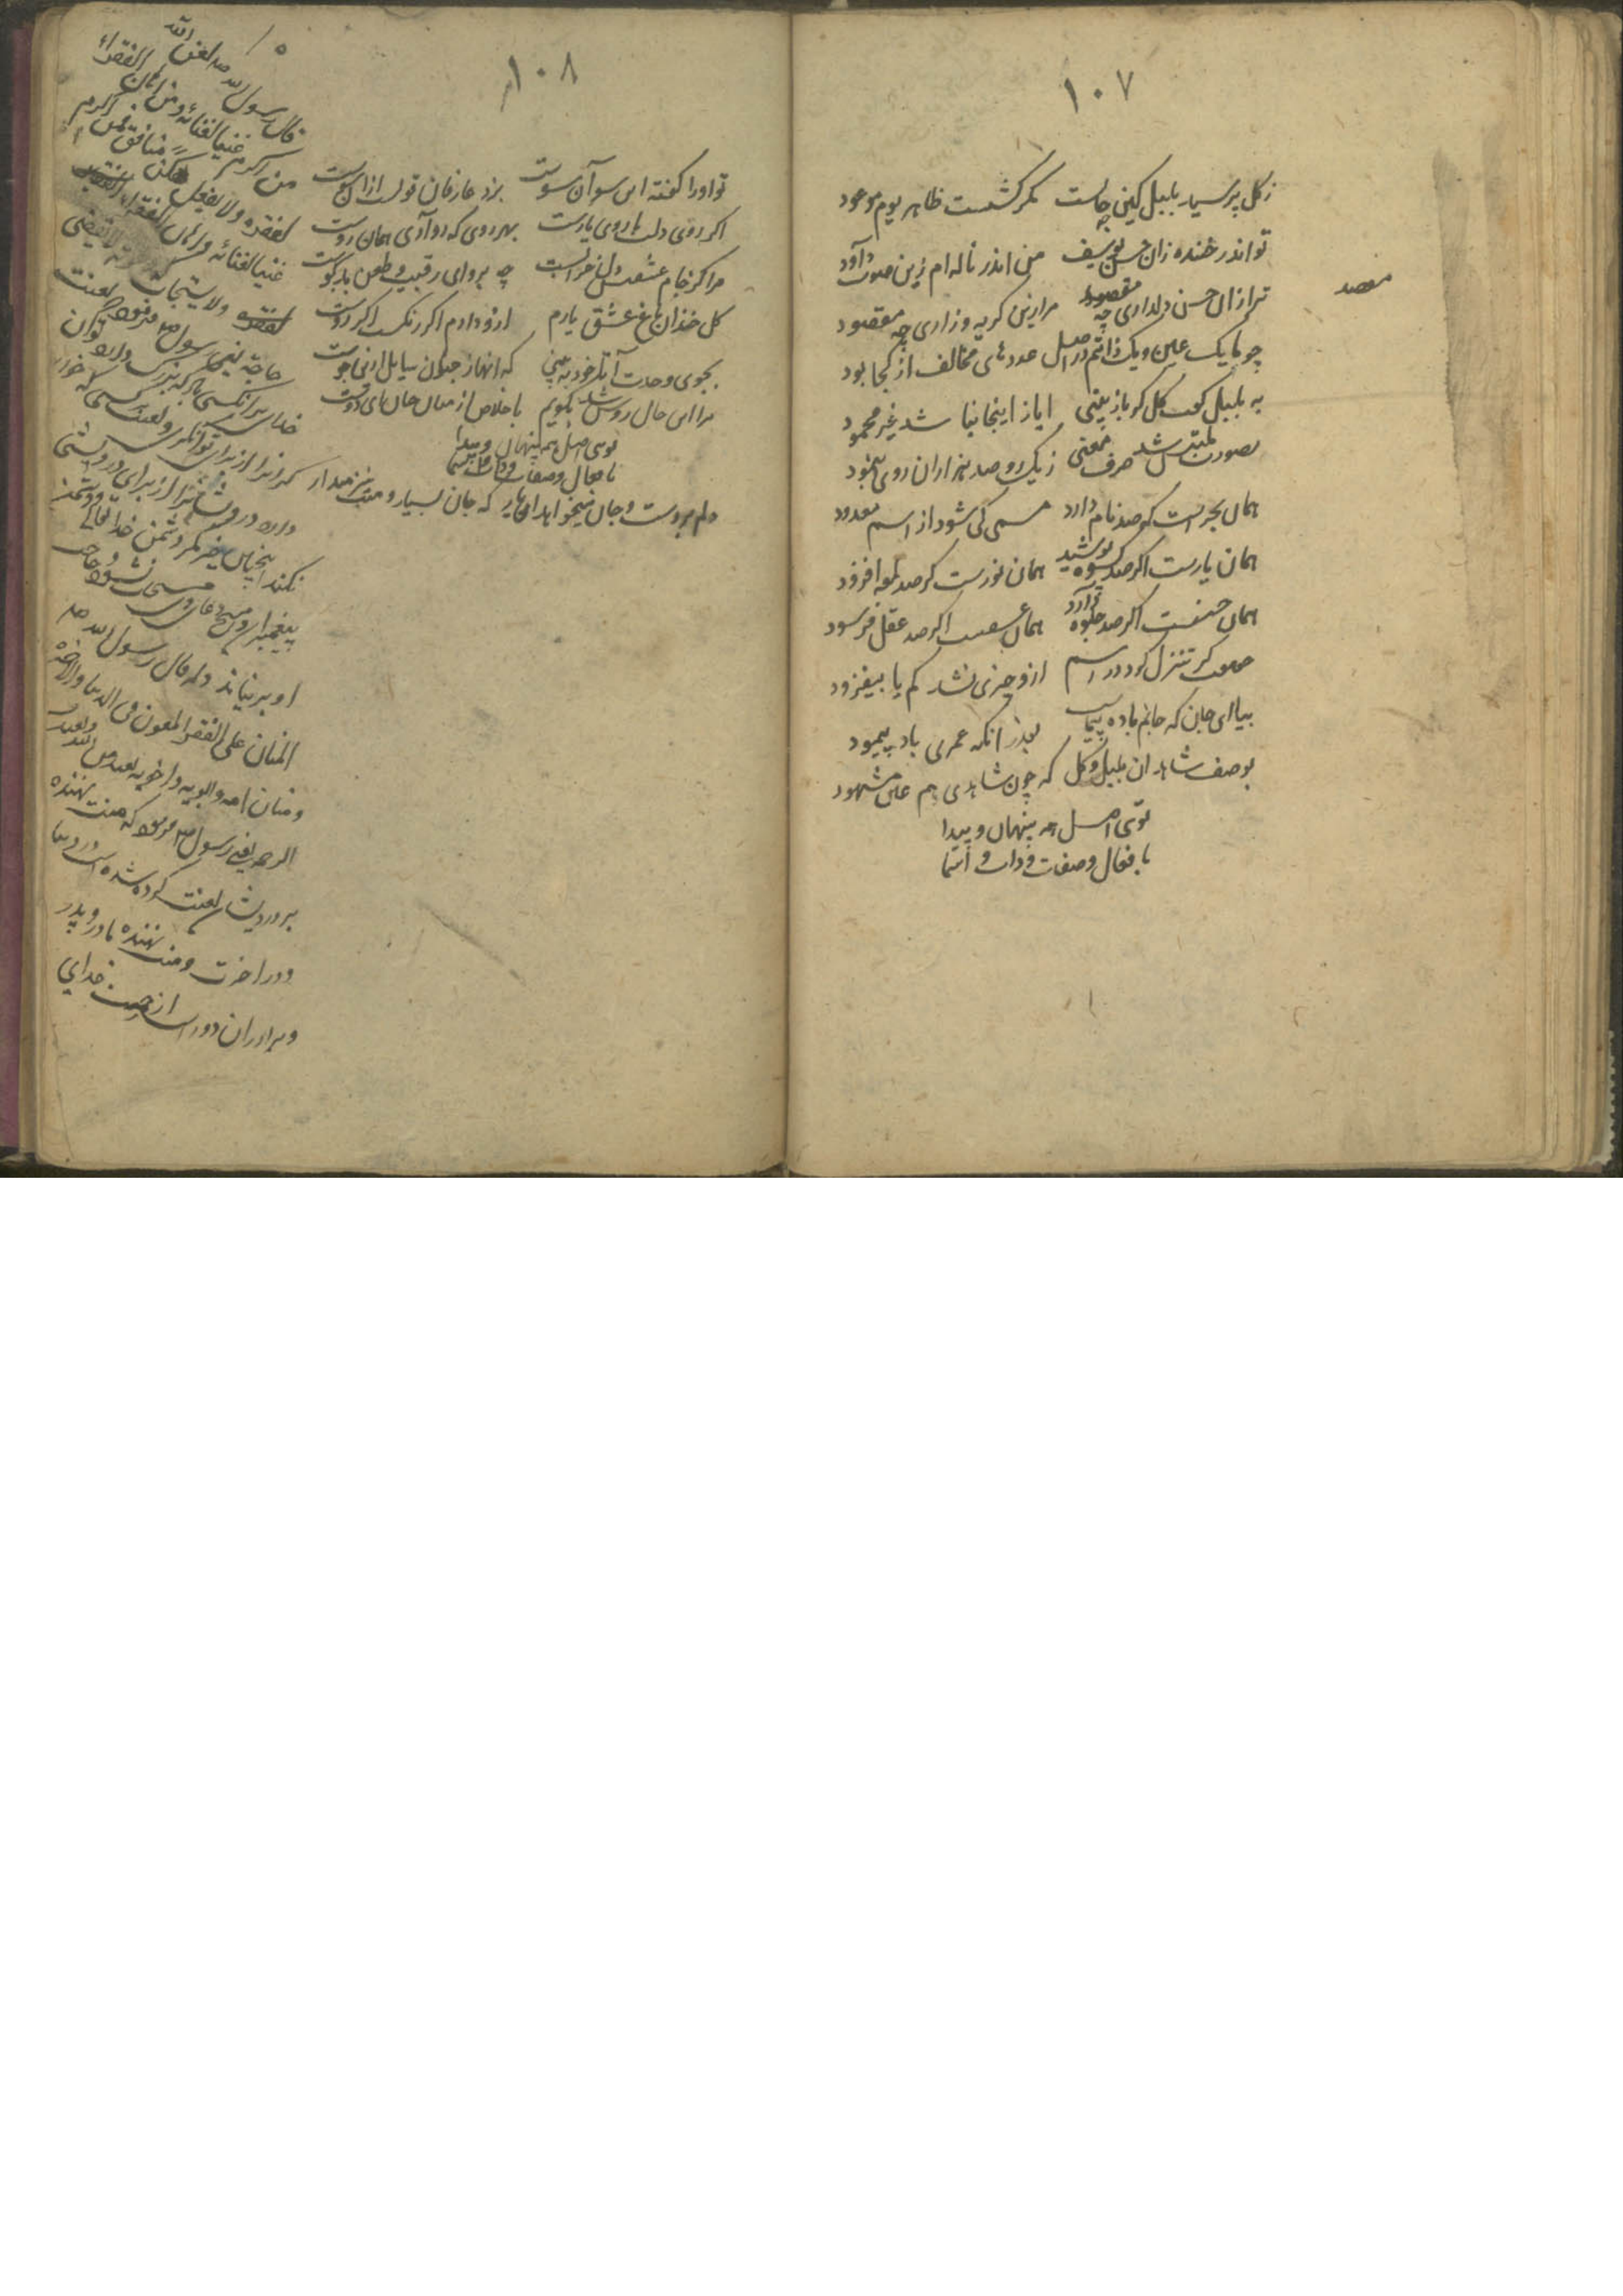 ١٠٧
ز گل پرسید بلبل کین چه جاست مگر گشتست ظاهر یوم موعود
تو اندر خنده زان حسن یوسف من اندر ناله ام زین صوت داود
ترا زان حسن دلداری چه مقصود مرا زین گریه و زاری چه مقصود
مقصد
چو ما یک عین و یک ذاتیم در اصل عددهای مخالف از کجا بود
به بلبل گفت گل کر باز بینی ایاز اینجا نباشد غیر محمود
بصورت ملتبس شد حرف معنی ز یک رو صد هزاران روی بنمود
همان بحریست کو صد نام دارد مسمی کی شود از اسم معدود
همان یارست اگر صد کسوه پوشید همان نورست گر صد لمعه افزود
همان حسنست اگر صد جلوه آرد همان عشقست اگر صد عقل فرسود
کر تنزل کرد در اسم ازو چیزی نشد کم یا بیفزود
بیا ای جان که جانم باده پیماست بعد زانکه عمری باد پیمود
بوصف شاهدان بلبل و گل که چون شاهدی هم عین مشهود
توئی اصل همه پنهان و پیدا
بافعال و صفات و ذات و اسما
١٠٨
تو او را گفته این سو آن سوست بزد عارفان قولست ازان سوست
اگر روی دلت با روی یارست بهر روی که رو آری همان روست
مرا کز جام عشقت دل خرابست چه پروای رقیب و طعن بدگوست
گل خندان باغ عشق یارم ازو دارم اگر رنگست اگر بوست
بجوی وحدت آ تا خود به بینی که انهار جهان سایل ازنی جوست
مرا این حال روشن شد بگویم باخلاص از میان جان که ای دوست
توئی اصل همه پنهان و پیدا
بافعال و صفات و ذات و اسما
دلم بردست و جان میخواهد آن یار که جان بسپار و منت نیز میدار
قال رسول الله صم لعن الله
من اکرم غنیا لغنائه و من اهان الفقراء
لفقره ولا یفعل هکذا الا منافق فمن اکرم
غنیا لغنائه و اهان الفقراء
لفقره ولا یستجاب دعوته لا یقضی
حاجته یعنی رسول صم فرمود لعنت
خدای بر آنکسی باد که بزرگ دارد توان
کرانرا از برای توانگری و لعنت بر کسی که خوار
دارد درویشانرا از برای درویشی
نکند این چنین مگر دشمن خدا
پیغمبران و هیچ دعای وی مستجاب نشود و حاجت
او بر نیاید و قال رسول الله صم
المنان علی الفقراء ملعون فی الدنیا والاخرة
و منان امه وابویه و اخویه بعید من
الرحمة یعنی رسول صم فرمود که منت نهنده
بر درویشان لعنت کرده شده است در دنیا
و در آخرت و منت نهنده مادر و پدر
و برادران دور است از رحمت خدای